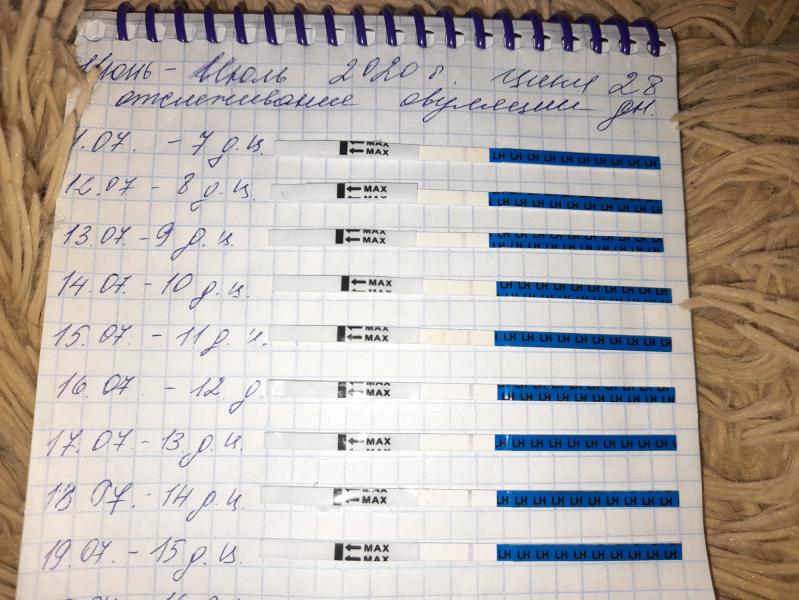 Июнь - Июль 2020г. цикл 28 дн.
отслеживание овуляции
1.07. - 7 д.ц. MAX MAX LH LH LH LH LH LH LH LH LH LH
12.07 - 8 д.ц. MAX LH LH LH LH LH LH LH LH LH LH
13.07. - 9 д.ц. MAX LH LH LH LH LH LH LH LH LH LH
14.07. - 10 д.ц. MAX LH LH LH LH LH LH LH LH LH LH
15.07. - 11 д.ц. MAX MAX LH LH LH LH LH LH LH LH LH LH
16.07 - 12 д. MAX MAX LH LH LH LH LH LH LH LH LH LH
17.07 - 13 д.ц. MAX LH LH LH LH LH LH LH LH LH LH
18.07. - 14 д.ц. MAX MAX LH LH LH LH LH LH LH LH LH LH
19.07. - 15 д.ц. MAX MAX LH LH LH LH LH LH LH LH LH LH